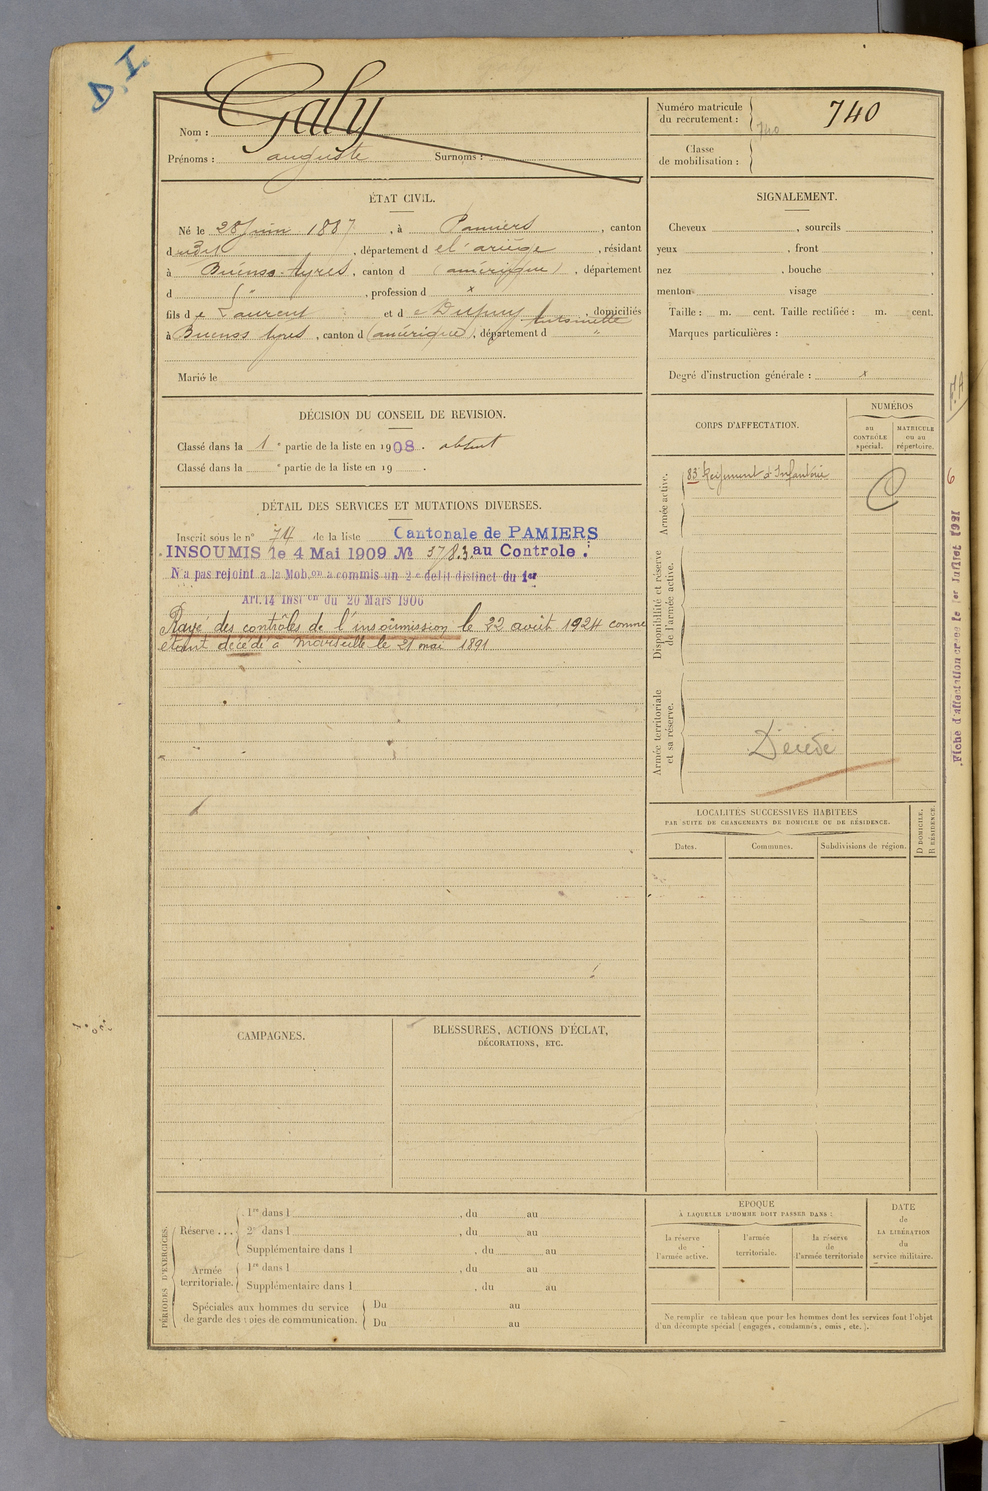 D.I.
Nom : Galy
Prénoms : auguste Surnoms :
Numéro matricule
du recrutement : 740 740
Classe
de mobilisation :
ÉTAT CIVIL.
Né le 28 Juin 1887, à Pamiers, canton
d udit, département d e l'ariège, résidant
à Buénos-Ayres, canton d (amérique), département
d ", profession d x
fils d e Laurent et d e Dupuy Antoinette, domiciliés
à Buenos Ayres, canton d (amérique), département d "
Marié le
SIGNALEMENT.
Cheveux , sourcils ,
yeux , front ,
nez , bouche ,
menton , visage .
Taille : m. cent. Taille rectifiée : m. cent.
Marques particulières :
Degré d'instruction générale : x
DÉCISION DU CONSEIL DE REVISION.
Classé dans la 1 e partie de la liste en 1908. absent
Classé dans la e partie de la liste en 19 .
DÉTAIL DES SERVICES ET MUTATIONS DIVERSES.
Inscrit sous le n° 74 de la liste Cantonale de PAMIERS
INSOUMIS le 4 Mai 1909 № 3783 au Controle.
N'a pas rejoint a la Mob.on a commis un 2e délit distinct du 1er
Art. 14 Inst on du 20 Mars 1906
Rayé des contrôles de l'insoumission le 22 août 1924 comme
étant décédé à Marseille le 21 mai 1891
CORPS D'AFFECTATION.
NUMÉROS
au
CONTRÔLE
spécial.
MATRICULE
ou au
répertoire.
Armée active.
83e Régiment d'Infanterie
C
Disponibilité et réserve
de l'armée active.
Armée territoriale
et sa réserve.
Décédé
F.A
6
Fiche d'affectation créée le 1er Juillet 1921
LOCALITÉS SUCCESSIVES HABITÉES
PAR SUITE DE CHANGEMENTS DE DOMICILE OU DE RÉSIDENCE.
Dates.
Communes.
Subdivisions de région.
D DOMICILE,
R RÉSIDENCE.
CAMPAGNES.
BLESSURES, ACTIONS D'ÉCLAT,
DÉCORATIONS, ETC.
PÉRIODES D'EXERCICES.
Réserve . . .
1re dans l , du au
2e dans l , du au
Supplémentaire dans l , du au
Armée
territoriale.
1re dans l , du au
Supplémentaire dans l , du au
Spéciales aux hommes du service
de garde des voies de communication.
Du au
Du au
EPOQUE
À LAQUELLE L'HOMME DOIT PASSER DANS :
la réserve
de
l'armée active.
l'armée
territoriale.
la réserve
de
l'armée territoriale
DATE
de
LA LIBÉRATION
du
service militaire.
Ne remplir ce tableau que pour les hommes dont les services font l'objet
d'un décompte spécial (engagés, condamnés, omis, etc.).